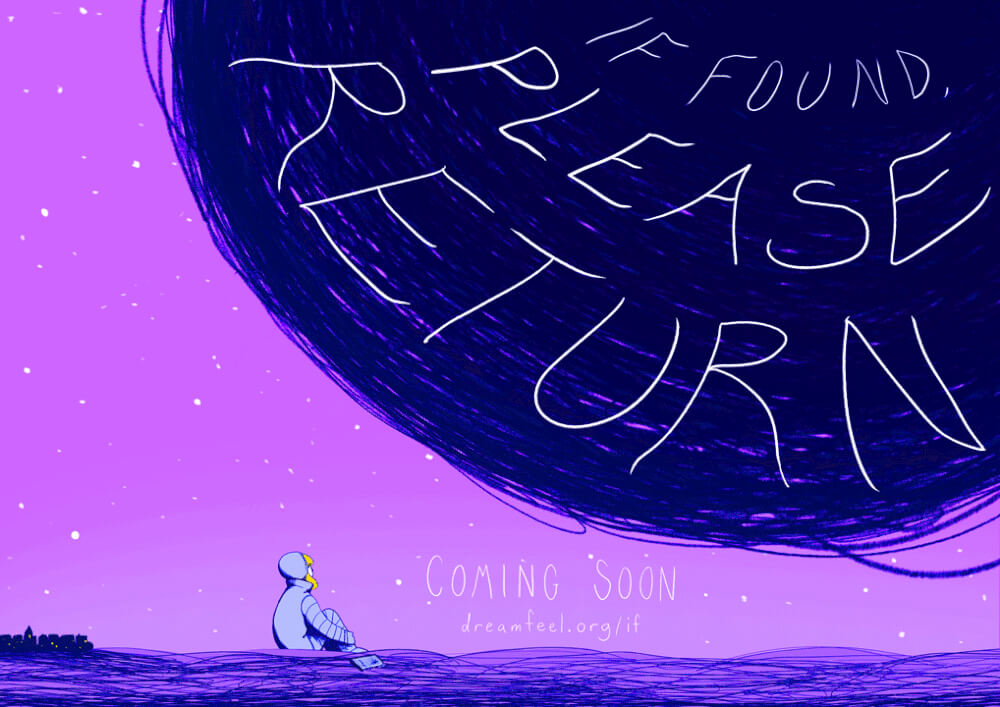 IF FOUND,
PLEASE
RETURN
COMING SOON
dreamfeel.org/if